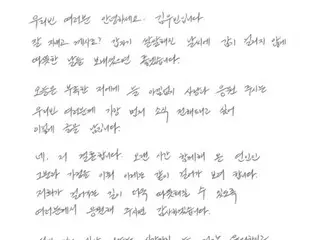 우리빈 여러분 안녕하세요. 김우빈입니다
잘 지내고 계시죠? 갑자기 쌀쌀해진 날씨에 감기 걸리지 않게
따뜻한 날들 보내셨으면 좋겠습니다.
오늘은 부족한 저에게 늘 아낌없이 사랑과 응원 주시는
우리빈 여러분에게 가장 먼저 소식 전해드리고 싶어
이렇게 글을 남깁니다.
네. 저 결혼합니다. 오랜 시간 함께해 온 연인인
그분과 가정을 이뤄 이제는 같이 걸어가 보려 합니다.
저희가 걸어가는 길이 더욱 따뜻해질 수 있도록
여러분께서 응원해 주시면 감사하겠습니다.